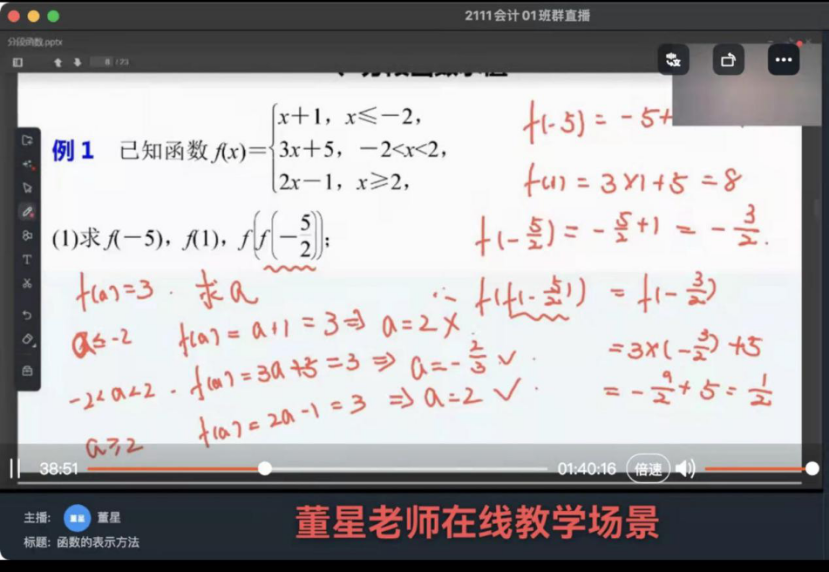 2111会计01班群直播
分段函数.pptx
8 / 23
例1 已知函数 f(x)={x+1, x≤-2,
3x+5, -2<x<2,
2x-1, x≥2,
(1)求 f(-5), f(1), f(f(-5/2));
f(-5) = -5+
f(1) = 3×1+5 = 8
f(-5/2) = -5/2+1 = -3/2.
f(a)=3. 求a
∴ f(f(-5/2)) = f(-3/2)
=3×(-3/2)+5
=-9/2+5=1/2
a≤-2 f(a)=a+1=3⇒a=2×
-2<a<2. f(a)=3a+5=3⇒a=-2/3✓.
a≥2 f(a)=2a-1=3⇒a=2✓.
38:51
01:40:16
倍速
主播: 董星
标题: 函数的表示方法
董星老师在线教学场景